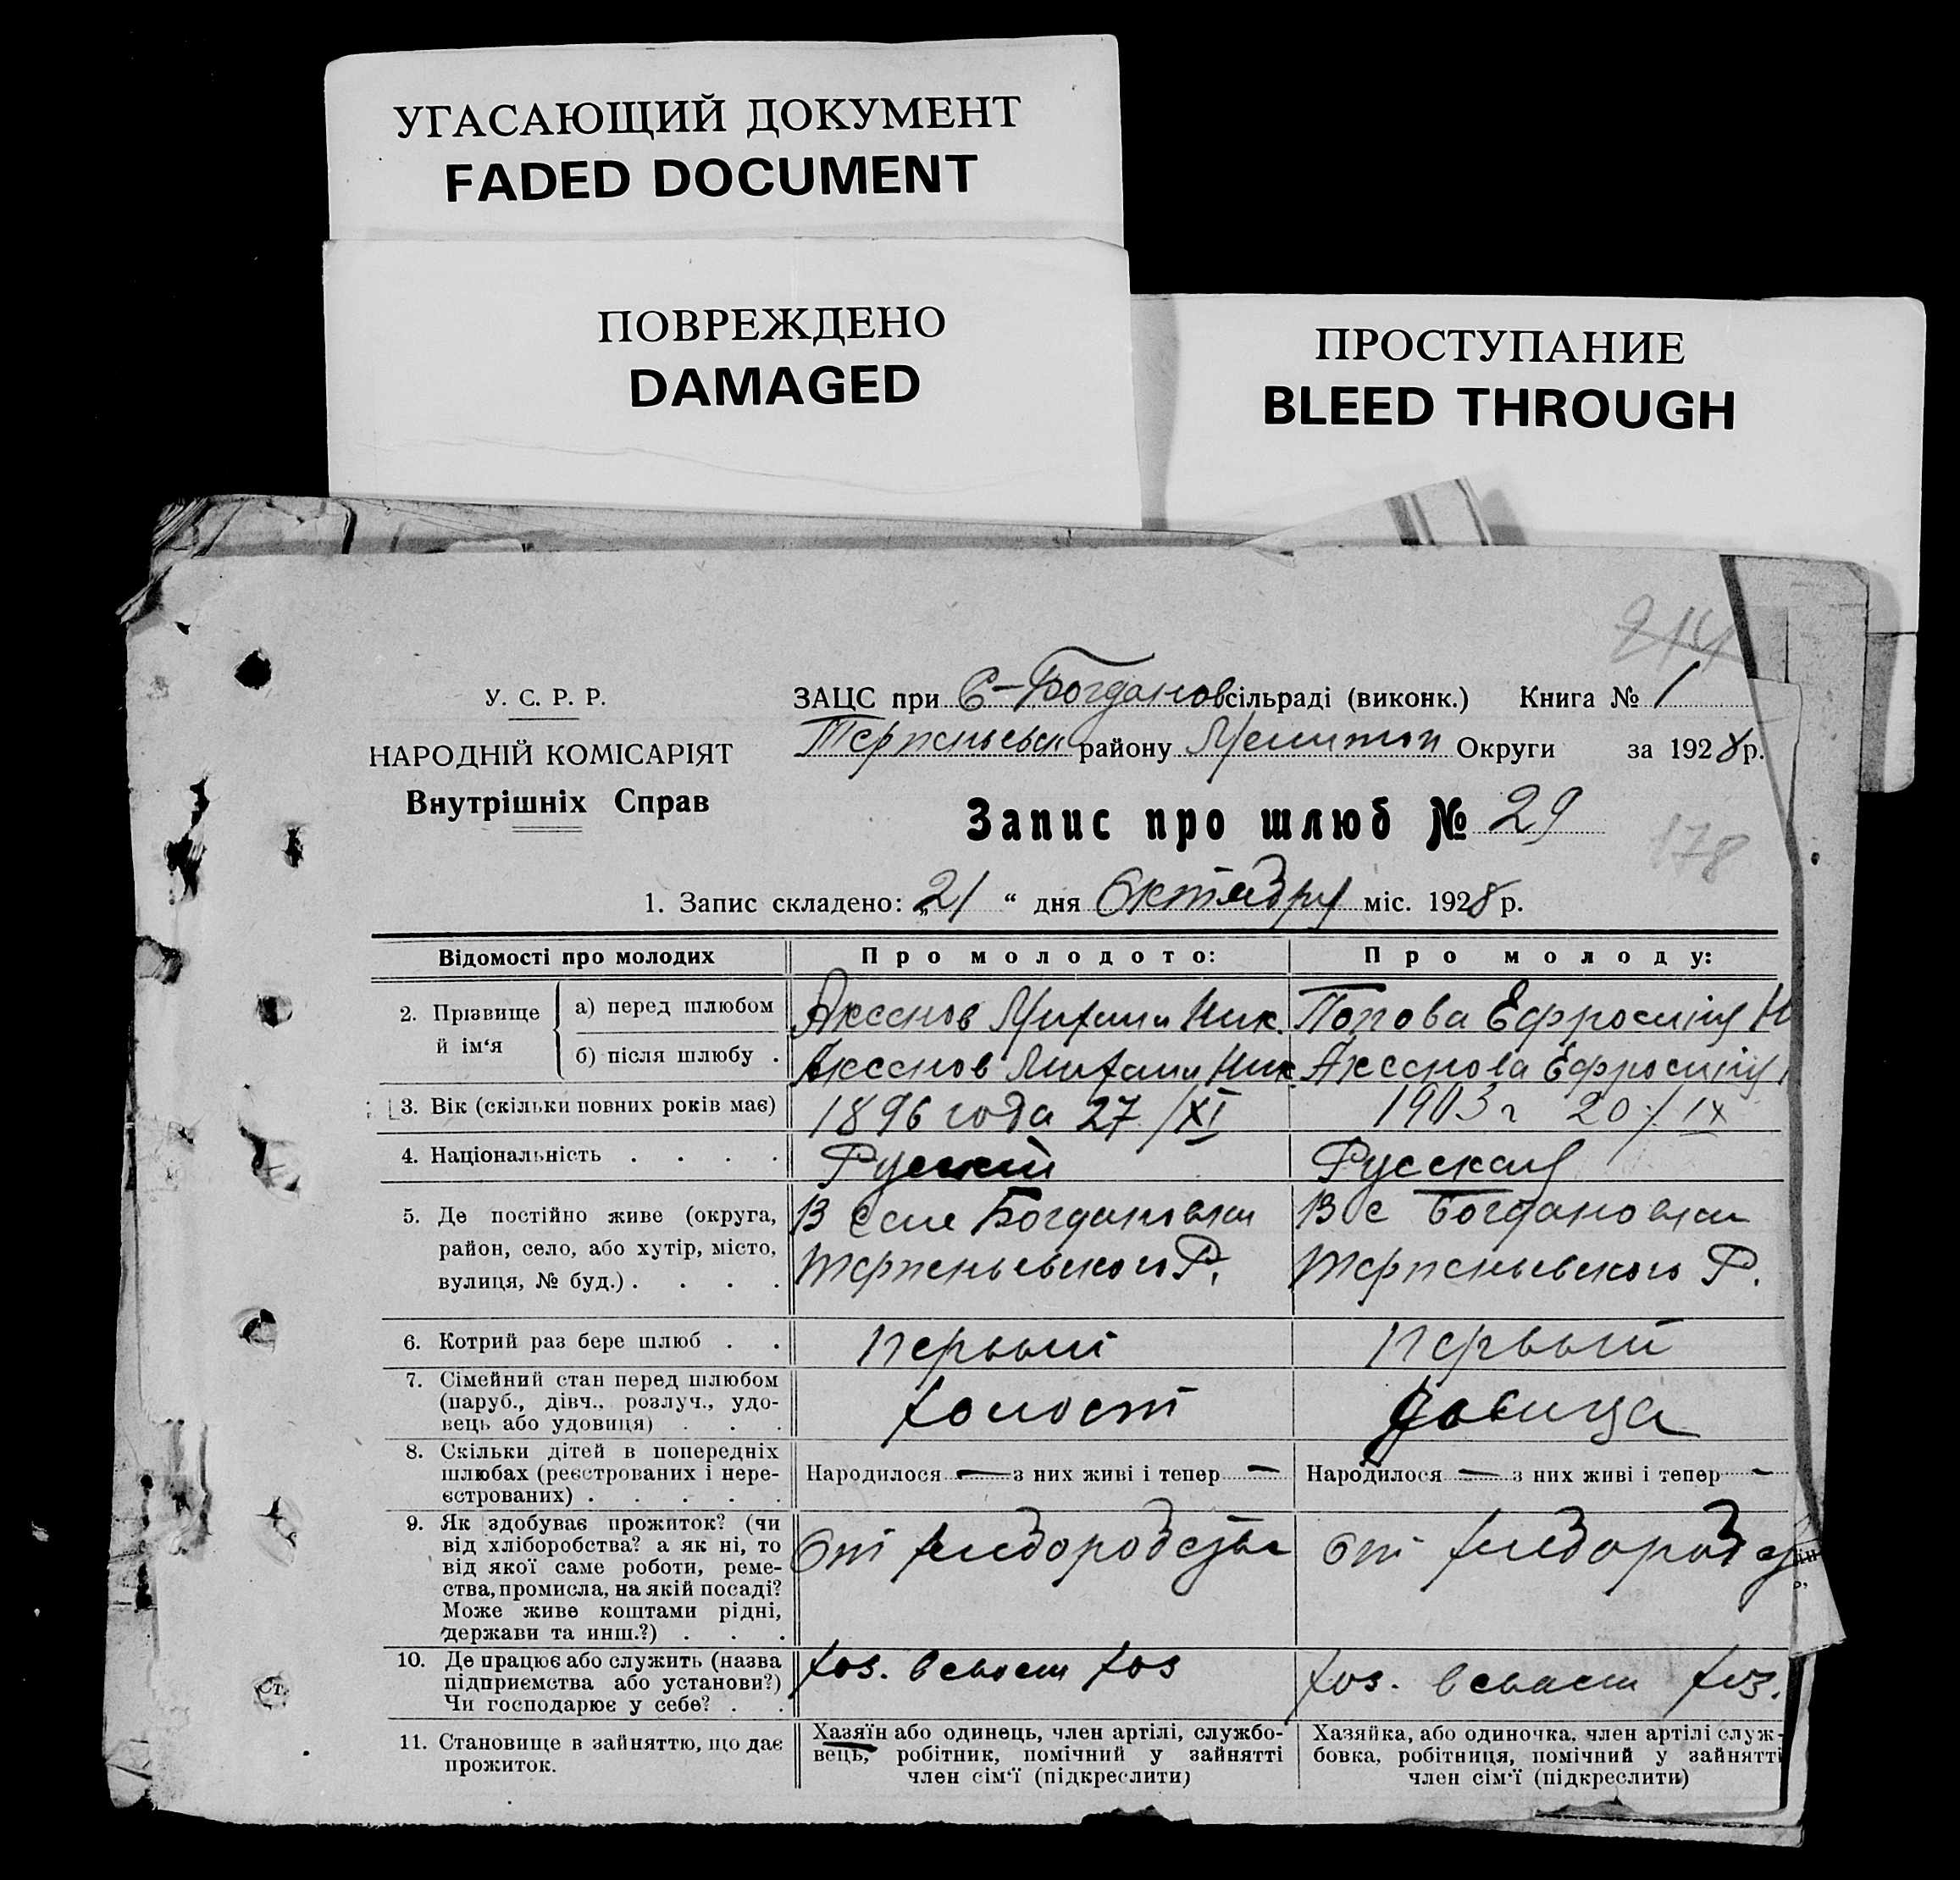 УГАСАЮЩИЙ ДОКУМЕНТ
FADED DOCUMENT
ПОВРЕЖДЕНО
DAMAGED
ПРОСТУПАНИЕ
BLEED THROUGH
214
У. С. Р. Р.
НАРОДНІЙ КОМІСАРІЯТ
Внутрішніх Справ
ЗАЦС при С-Богданов сільраді (виконк.) Книга № 1
Терпеньевск району Мелитоп Округи за 1928 р.
Запис про шлюб № 29
178
1. Запис складено: „21“ дня Октября міс. 1928 р.
Відомості про молодих Про молодого: Про молоду:
2. Прізвище й ім‘я
а) перед шлюбом Аксенов Михаил Ник. Попова Ефросиния Н
б) після шлюбу . Аксенов Михаил Ник Аксенова Ефросиния
3. Вік (скільки повних років має) 1896 года 27/XI 1903 г 20/IX
4. Національність . . . . Русский Русская
5. Де постійно живе (округа, район, село, або хутір, місто, вулиця, № буд.) . . . .
В селе Богдановки
Терпеньевского Р.
В с Богдановки
Терпеньевского Р.
6. Котрий раз бере шлюб . . первый первый
7. Сімейний стан перед шлюбом
(паруб., дівч., розлуч., удо-
вець або удовиця) . . .
холост девица
8. Скільки дітей в попередніх
шлюбах (реєстрованих і нере-
єстрованих) . . . . .
Народилося — з них живі і тепер — Народилося — з них живі і тепер —
9. Як здобуває прожиток? (чи
від хліборобства? а як ні, то
від якої саме роботи, реме-
ства, промисла, на якій посаді?
Може живе коштами рідні,
держави та инш.?) . . .
От хлебородства От хлебород
10. Де працює або служить (назва
підприємства або установи?)
Чи господарює у себе? . .
хоз. в своем хоз хоз. в своем хоз.
11. Становище в зайняттю, що дає
прожиток.
Хазяїн або одинець, член артілі, службо-
вець, робітник, помічний у зайнятті
член сім‘ї (підкреслити)
Хазяйка, або одиночка, член артілі служ-
бовка, робітниця, помічний у зайнятті
член сім‘ї (підкреслити)
Ст.